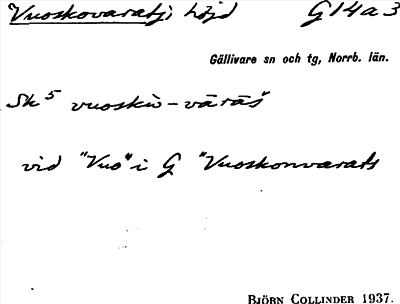 Vuoskovaratj, höjd G14a3
Gällivare sn och tg, Norrb. län.
Sk⁵ vuoskū-vārāš
vid "Vuo" i G "Vuoskonvarats
BJÖRN COLLINDER 1937.